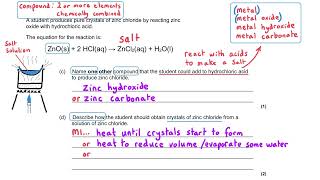 compound: 2 or more elements
chemically combined
(metal)
(metal oxide)
metal hydroxide
metal carbonate
A student produces pure crystals of zinc chloride by reacting zinc
oxide with hydrochloric acid.
The equation for the reaction is:
Salt
Solution
salt
ZnO(s) + 2 HCl(aq) → ZnCl₂(aq) + H₂O(l)
react with acids
to make a Salt
(c) Name one other compound that the student could add to hydrochloric acid
to produce zinc chloride.
zinc hydroxide
or zinc carbonate
(1)
(d) Describe how the student should obtain crystals of zinc chloride from a
solution of zinc chloride.
M1... heat until crystals start to form
or heat to reduce volume /evaporate some water
or
(2)